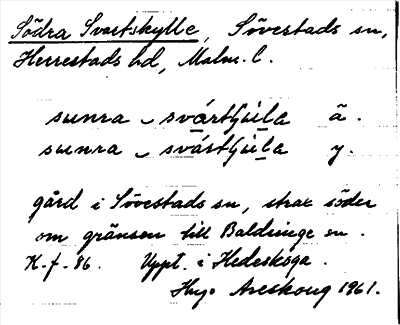 Södra Svartskylle, Sövestads sn,
Herrestads hd, Malm. l.
sunra svártʃila ä.
sunra svártʃila y.
gård i Sövestads sn, strax söder
om gränsen till Baldringe sn.
K.f. 86. Uppt. i Hedeskoga.
Hugo Areskoug 1961.